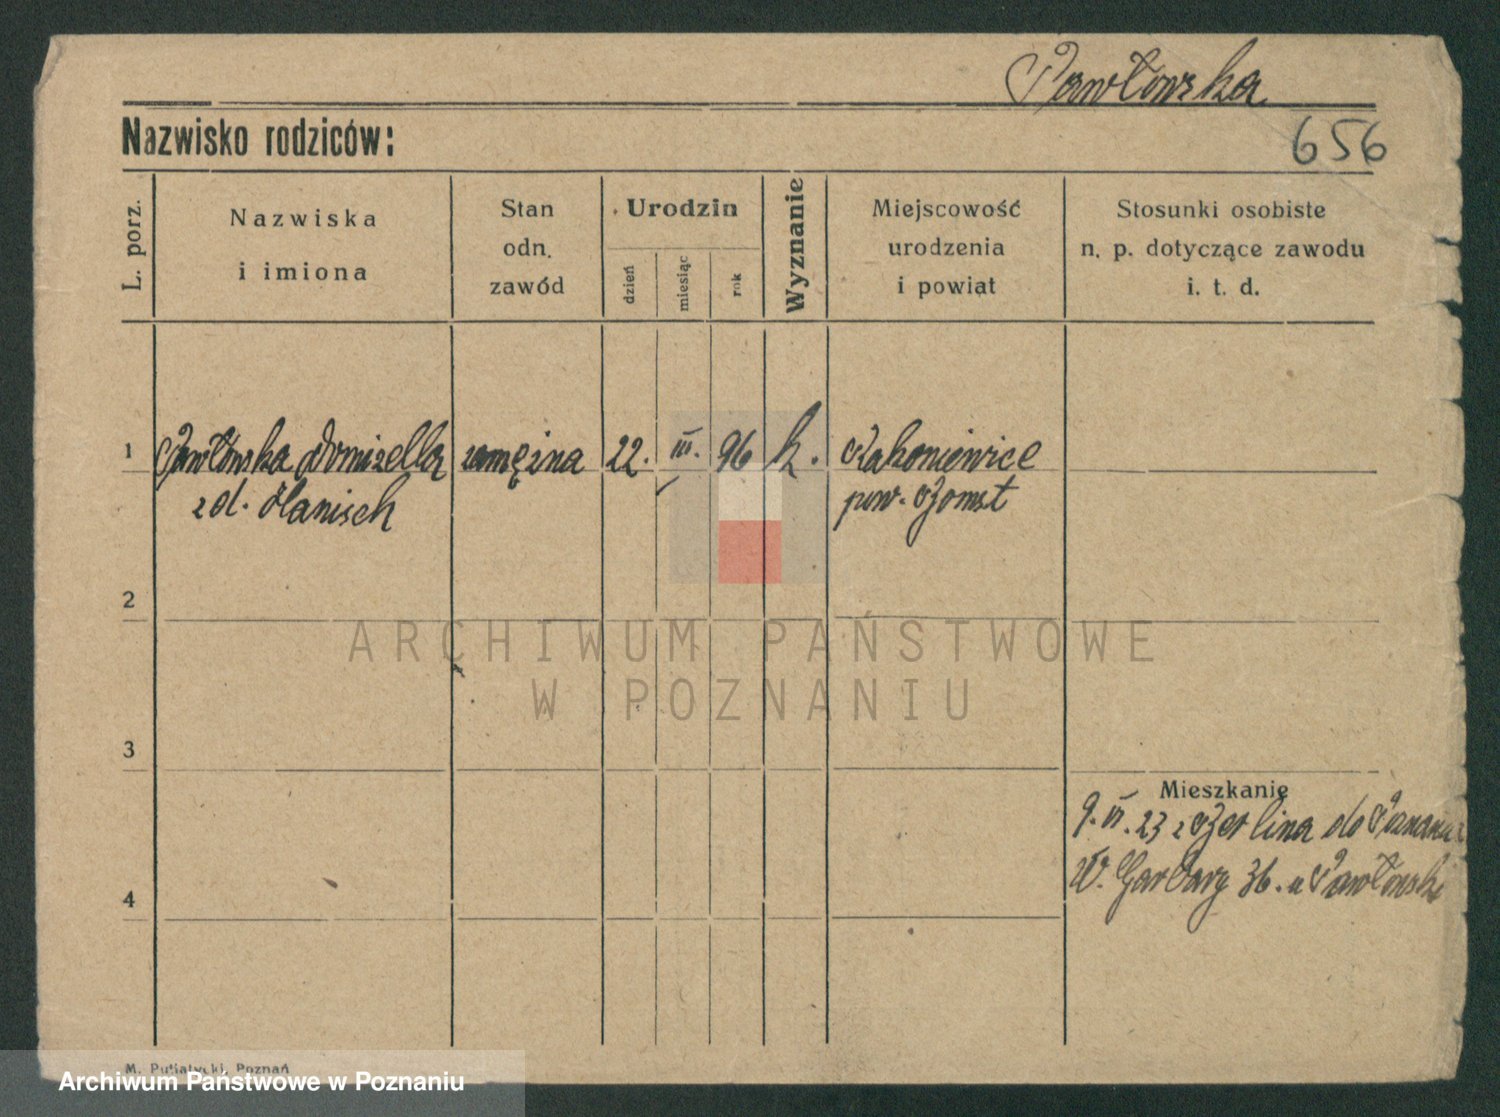 Pawłowska
Nazwisko rodziców:
656
L. porz.
Nazwiska
i imiona
Stan
odn.
zawód
Urodzin
dzień
miesiąc
rok
Wyznanie
Miejscowość
urodzenia
i powiat
Stosunki osobiste
n. p. dotyczące zawodu
i. t. d.
1
Pawłowska Domizella
zamężna
22.
III.
96
k.
Rakoniewice
zd. Hanisch
pow. Bomst
2
ARCHIWUM PAŃSTWOWE
W POZNANIU
3
Mieszkanie
9. VI. 23 z Berlina do Poznania
4
W. Garbary 36. u Pawłowski
M. Putiatycki, Poznań
Archiwum Państwowe w Poznaniu